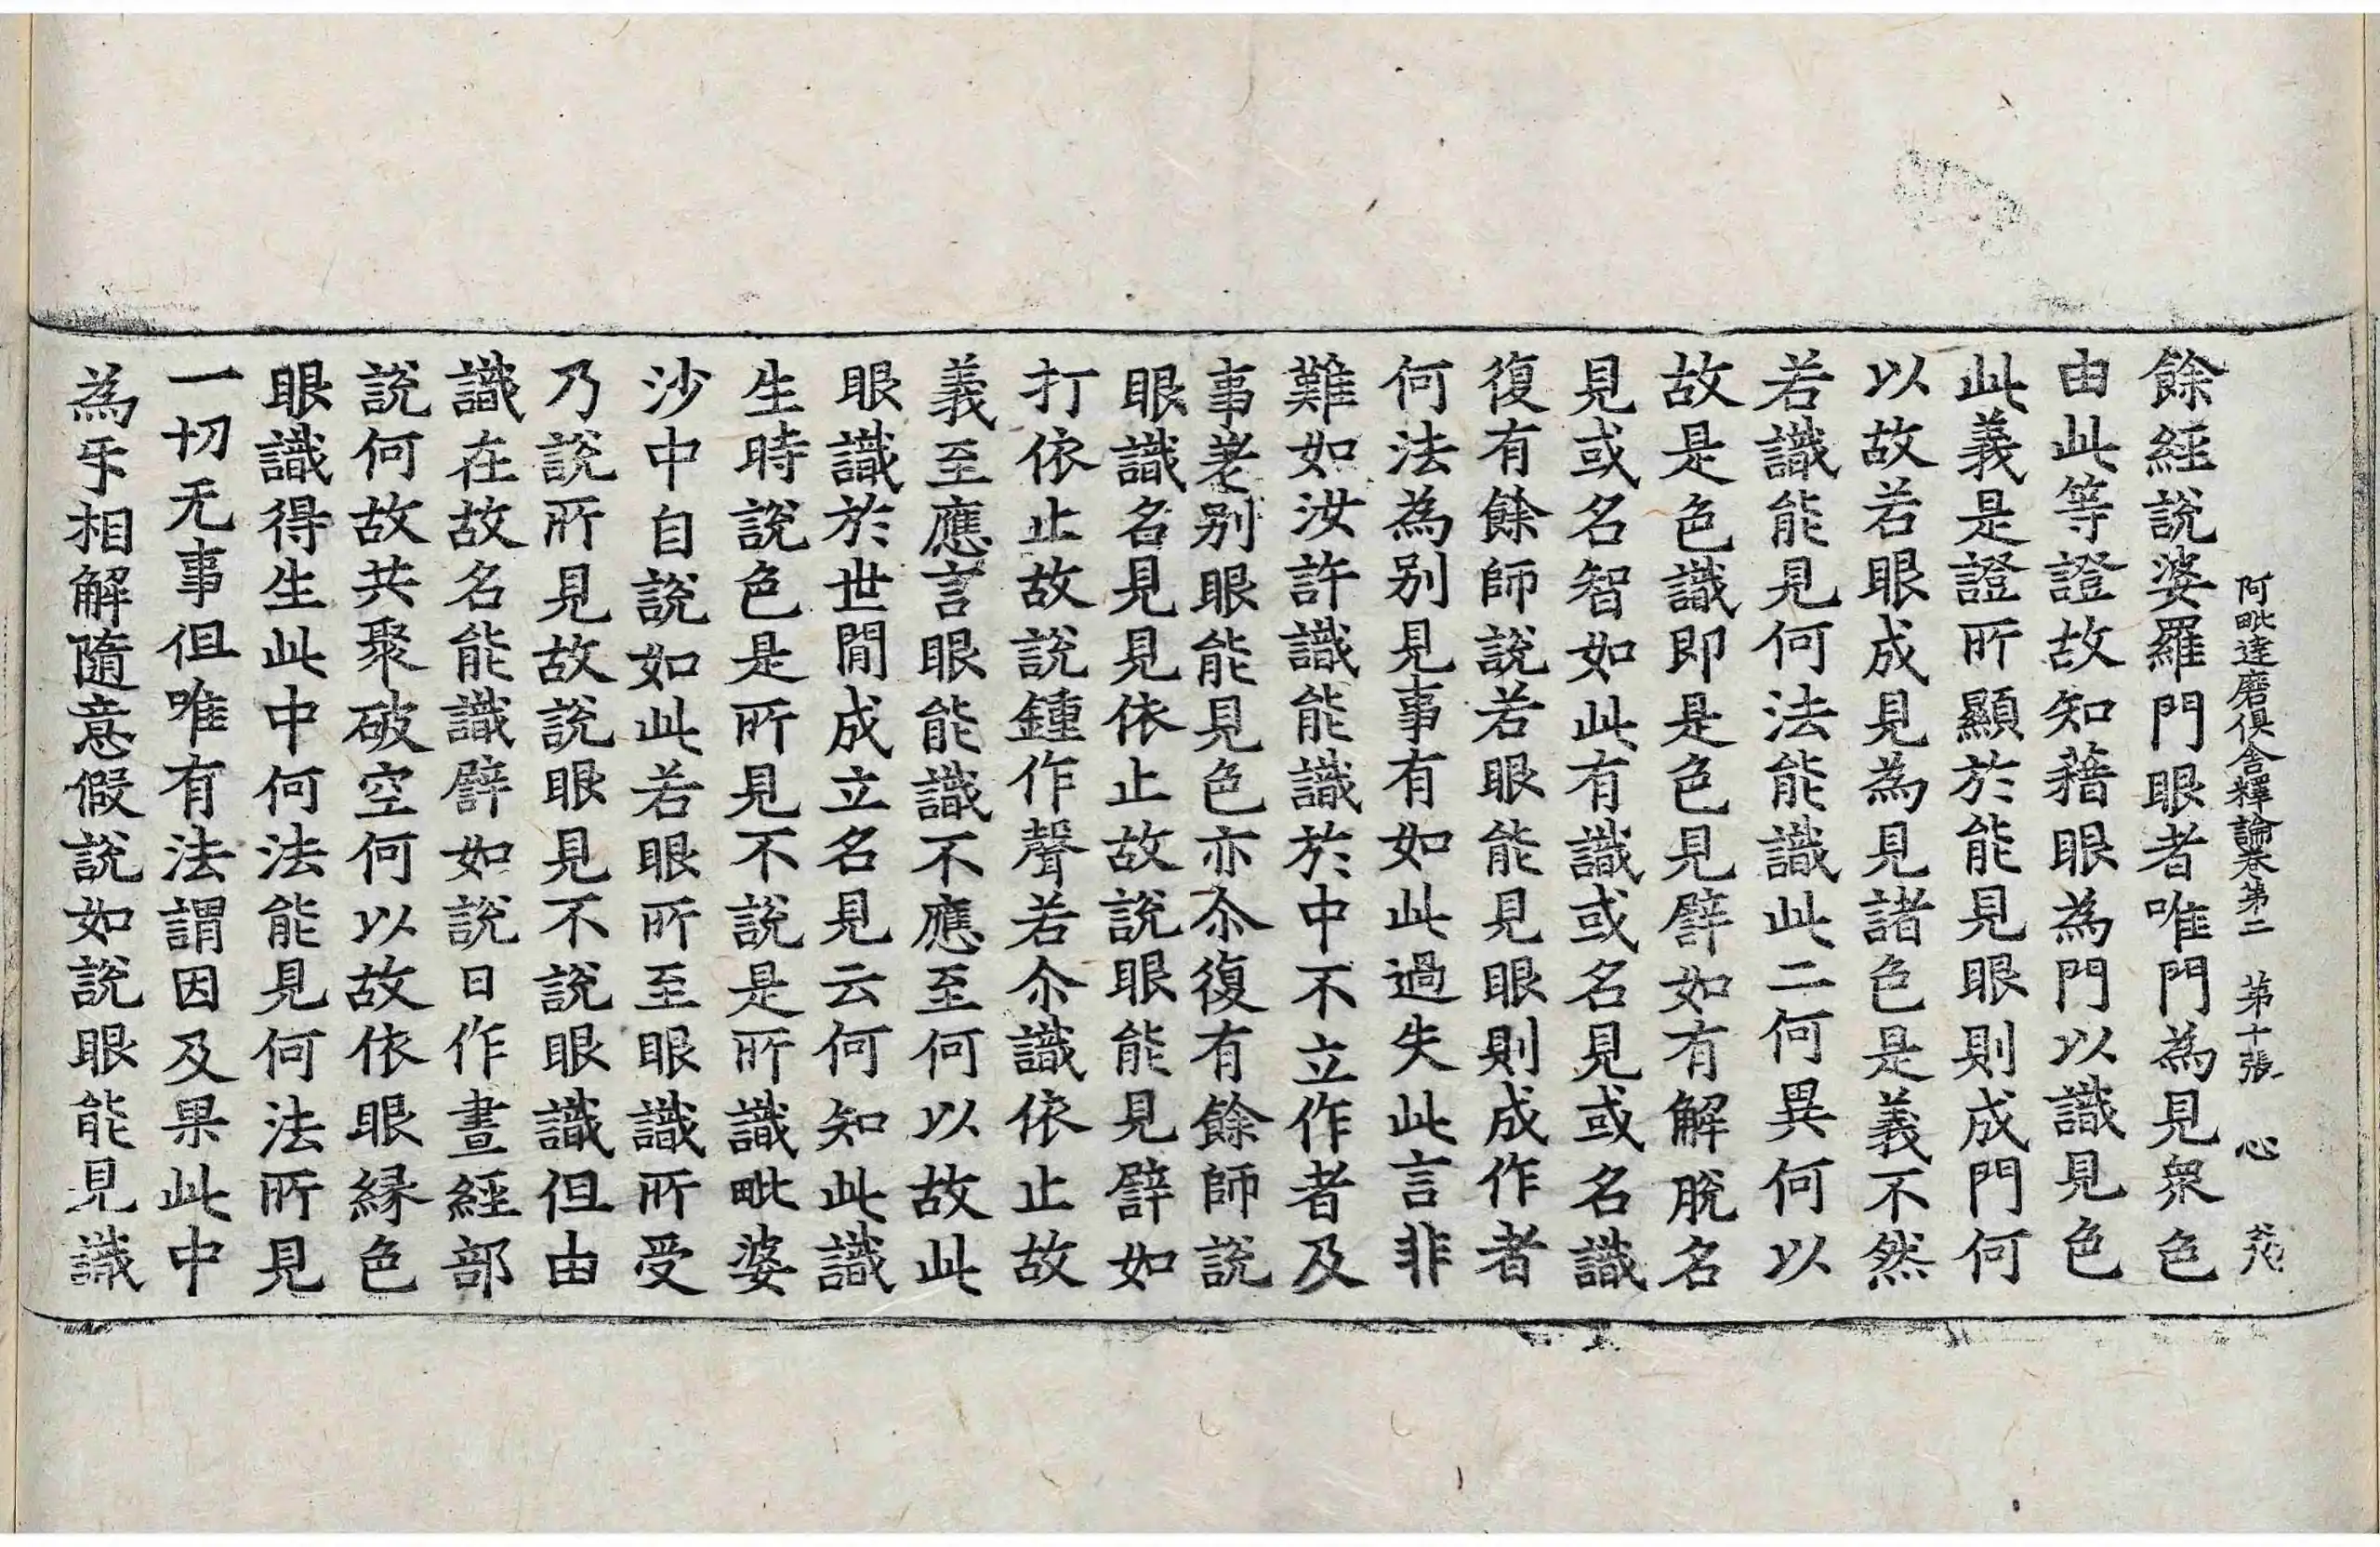 阿毗達磨俱舍釋論卷第二 第十張 心
餘經說婆羅門眼者唯門為見衆色
由此等證故知藉眼為門以識見色
此義是證所顯於能見眼則成門何
以故若眼成見為見諸色是義不然
若識能見何法能識此二何異何以
故是色識即是色見譬如有解脫名
見或名智如此有識或名見或名識
復有餘師說若眼能見眼則成作者
何法為別見事有如此過失此言非
難如汝許識能識於中不立作者及
事差別眼能見色亦尒復有餘師說
眼識名見見依止故說眼能見譬如
打依止故說鍾作聲若尒識依止故
義至應言眼能識不應至何以故此
眼識於世間成立名見云何知此識
生時說色是所見不說是所識毗婆
沙中自說如此若眼所至眼識所受
乃說所見故說眼見不說眼識但由
識在故名能識譬如說日作晝經部
說何故共聚破空何以故依眼緣色
眼識得生此中何法能見何法所見
一切无事但唯有法謂因及果此中
為㸦相解隨意假說如說眼能見識